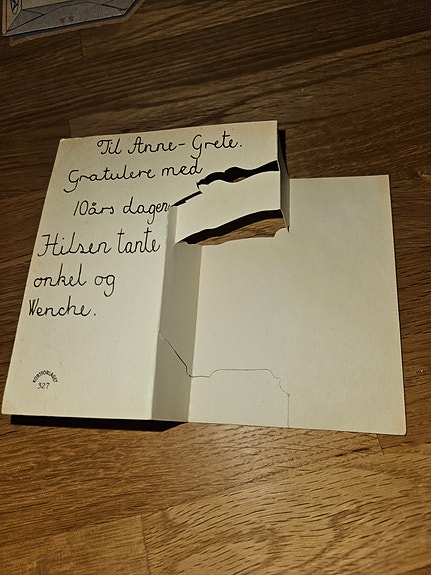 Til Anne-Grete.
Gratulere med
10års dagen
Hilsen tante
onkel og
Wenche.
KORTFORLAGET
327
55